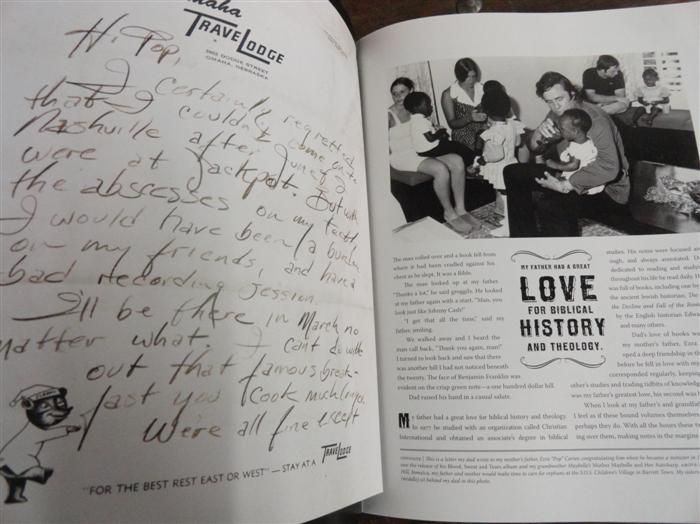 Omaha
TRAVELODGE
OMAHA, NEBRASKA
Hi Pop,
I certainly regretted
that I couldn't come on to
Nashville after June & I
were at Jackpot. But with
the abscesses on my teeth
I would have been a burden
on my friends, and have a
bad recording session.
I'll be there in March no
matter what. I can't do with
out that famous break-
fast you cook much longer
We're all fine except
"FOR THE BEST REST EAST OR WEST" — STAY AT A TRAVELODGE
The man rolled over and a book fell from
where it had been cradled against his
chest as he slept. It was a Bible.
The man looked up at my father.
"Thanks a lot," he said groggily. He looked
at my father again with a start. "Man, you
look just like Johnny Cash!"
"I get that all the time," said my
father, smiling.
We walked away and I heard the
man call back, "Thank you again, man!"
I turned to look back and saw that there
was another bill I had not noticed beneath
the twenty. The face of Benjamin Franklin was
evident on the crisp green note—a one hundred dollar bill.
Dad raised his hand in a casual salute.
My father had a great love for biblical history and theology.
In 1977 he studied with an organization called Christian
International and obtained an associate's degree in biblical
MY FATHER HAD A GREAT
LOVE
FOR BIBLICAL
HISTORY
AND THEOLOGY.
studies. His notes were focused
ough, and always annotated.
dedicated to reading and
throughout his life he read daily.
was full of books, including one by
the ancient Jewish historian,
the Decline and Fall of the
by the English historian
and many others.
Dad's love of books
my mother's father, Ezra
oped a deep friendship in
before he fell in love with my
corresponded regularly, keeping
other's studies and trading tidbits of
was my father's greatest love, his second was
When I look at my father's and
I feel as if these bound volumes
perhaps they do. With all the hours
ing over them, making notes in the margins
OPPOSITE | This is a letter my dad wrote to my mother's father, Ezra "Pop" Carter, congratulating him when he became a minister in
saw the release of his Blood, Sweat and Tears album and my grandmother Maybelle's Mother Maybelle and Her Autoharp.
Hill, Jamaica, my father and mother would make time to care for orphans at the S.O.S. Children's Village in Barrett Town. My sisters
(middle) sit behind my dad in this photo.